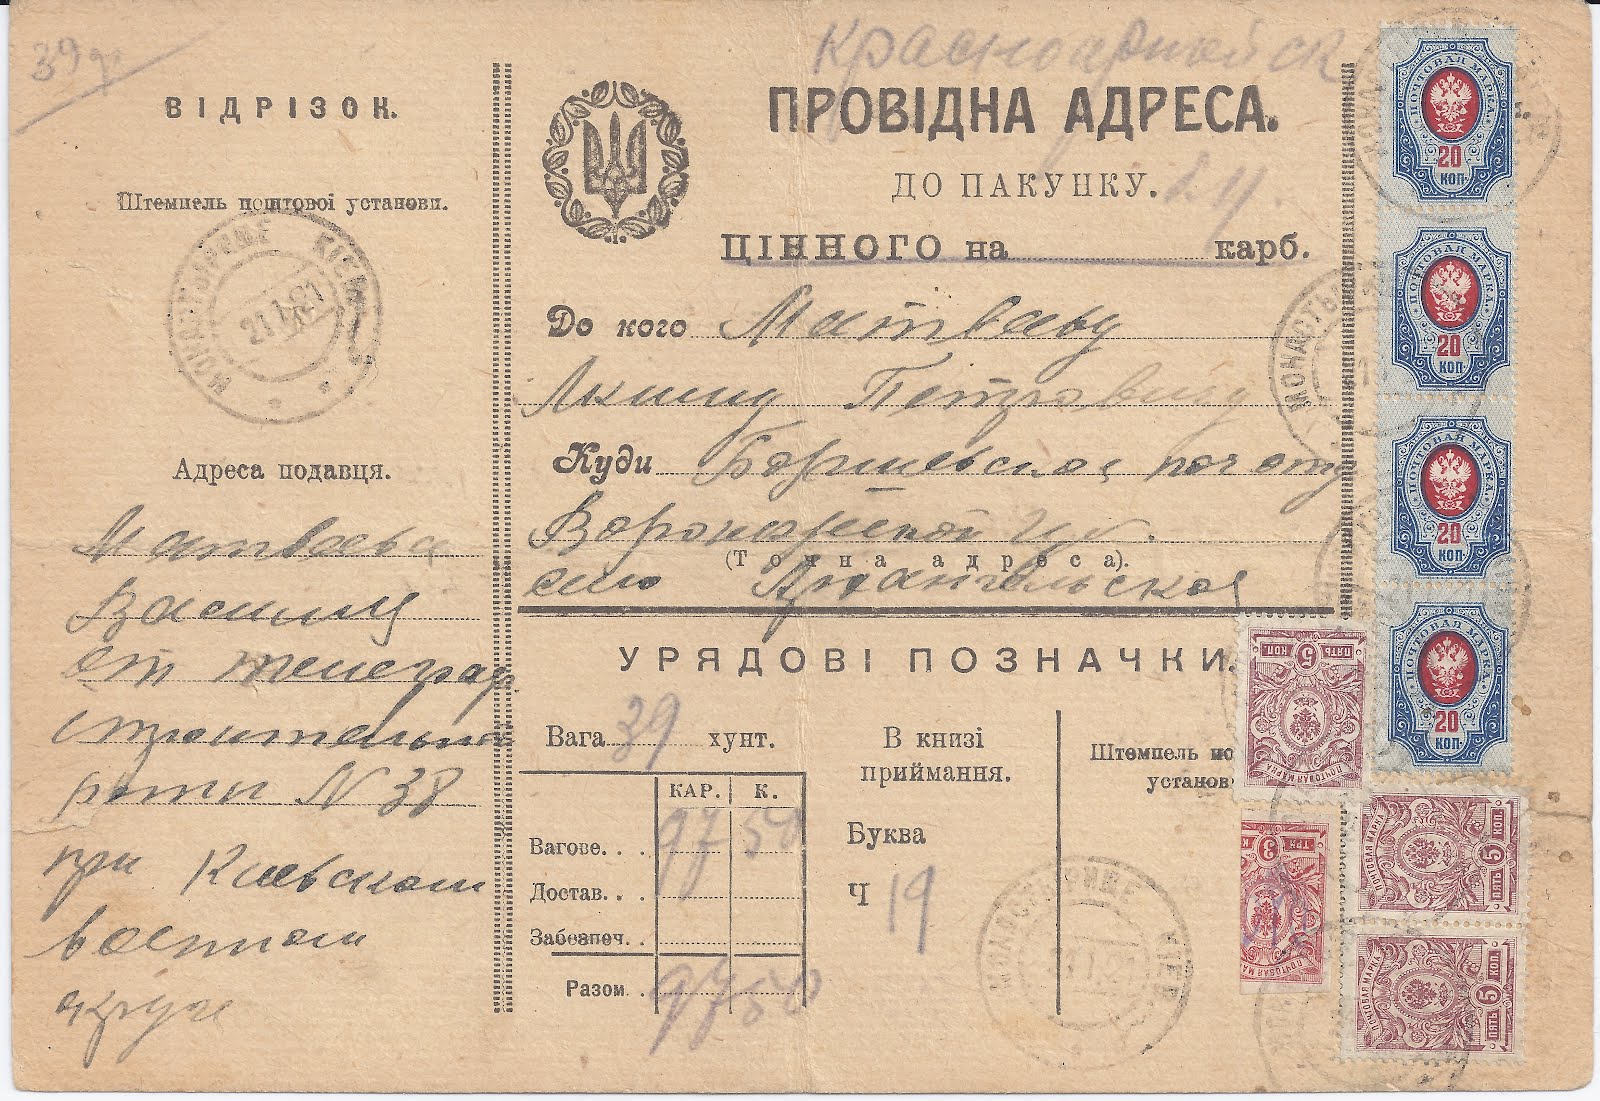 39
Красноармейск
ВІДРІЗОК.
Штемпель поштової установи.
МОНАСТЫРИЩЕ КІЕВ
21 1 21
Адреса подавця.
Матвеева
Василия
от телеграф
строительной
роты N 38
при Киевском
военном
округе
ПРОВІДНА АДРЕСА.
ДО ПАКУНКУ.
ЦІННОГО на карб.
До кого Матвееву
Якиму Петровичу
Куди
Воронежской губ.
(Точна адреса).
село Архангельское
УРЯДОВІ ПОЗНАЧКИ.
Вага 39 хунт.
КАР. К.
Вагове. . . 97 50
Достав. . .
Забезпеч. .
Разом. . 97 50
В книзі
приймання.
Буква
Ч 19
Штемпель по
установ
МОНАСТЫРИЩЕ КІЕВ
ПОЧТОВАЯ МАРКА
20
КОП.
ПОЧТОВАЯ МАРКА
20
КОП.
ПОЧТОВАЯ МАРКА
20
КОП.
ПОЧТОВАЯ МАРКА
20
КОП.
МОНАСТЫ
ПОЧТОВАЯ МАРКА
5 КОП. ПЯТЬ
ПОЧТОВАЯ МА
3 ТРИ К
ПОЧТОВАЯ МАРКА
5 КОП. ПЯТЬ
ПОЧТОВАЯ МАРКА
5 КОП. ПЯТЬ